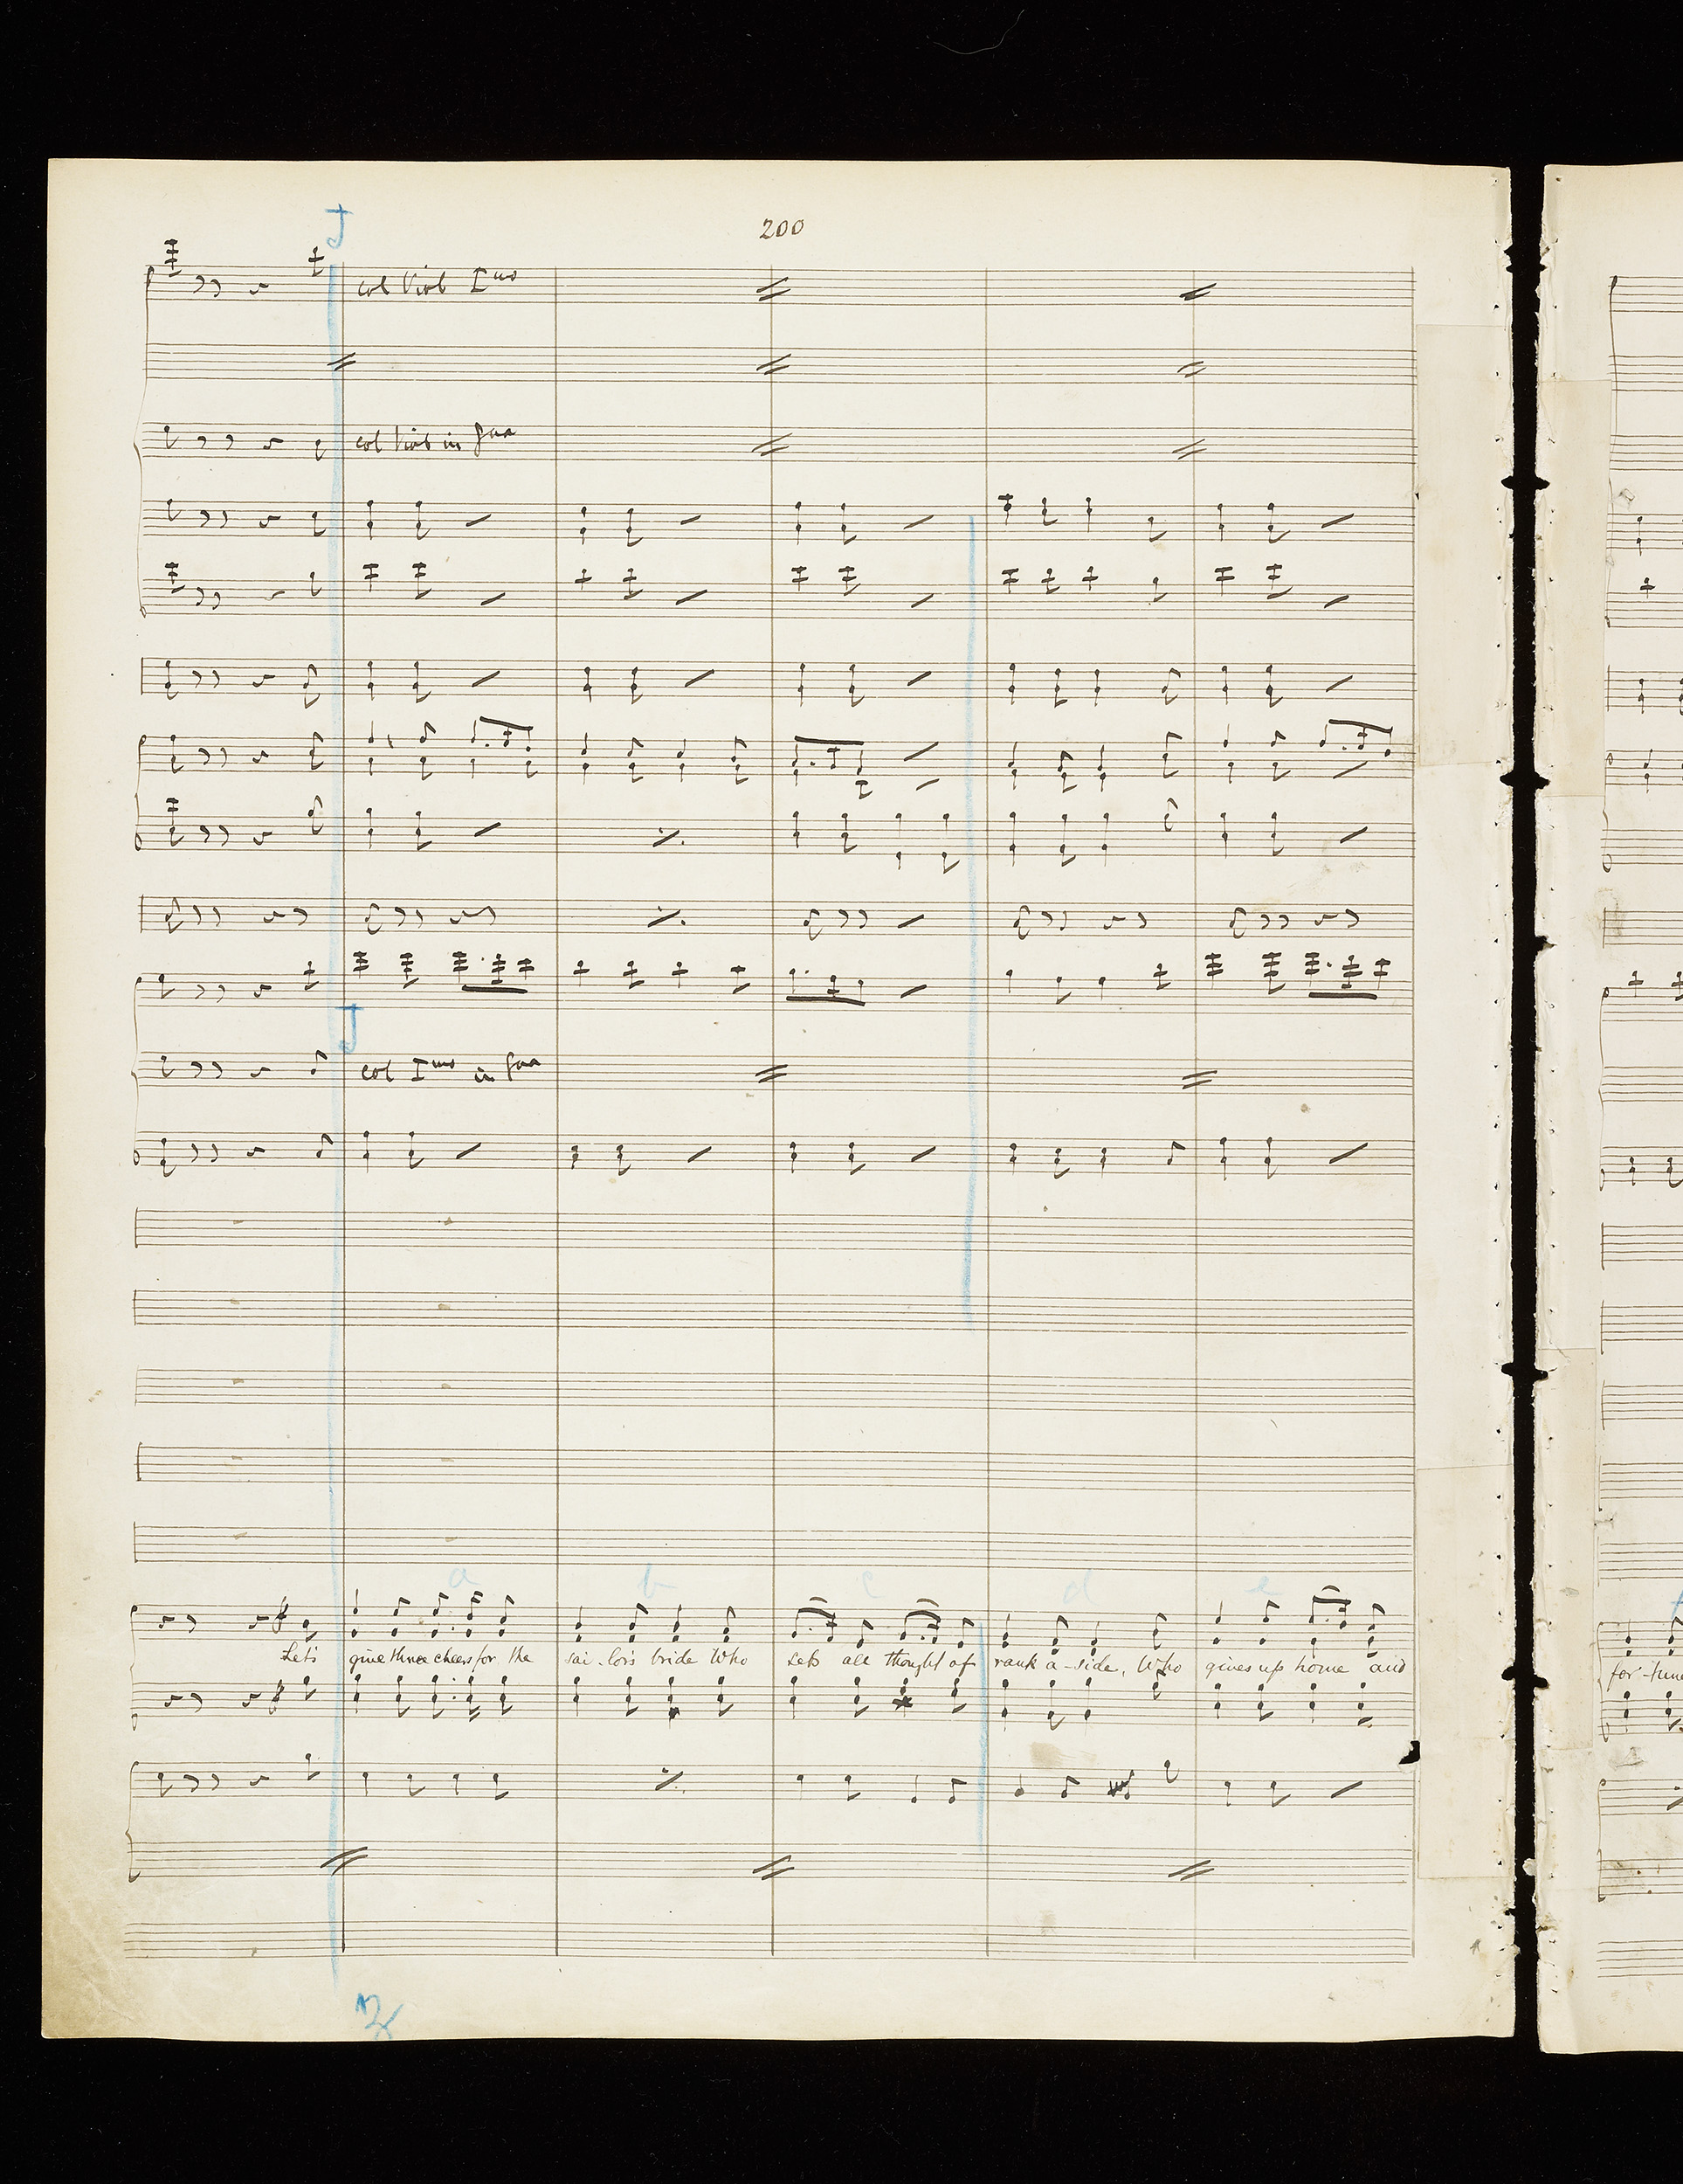 J
200
col Viol Imo
col Viol in 8va
J
col Imo in 8va
a b c d e
Let's give three cheers for the sai-lor's bride Who sets all thought of rank a-side, Who gives up home and
for-tune